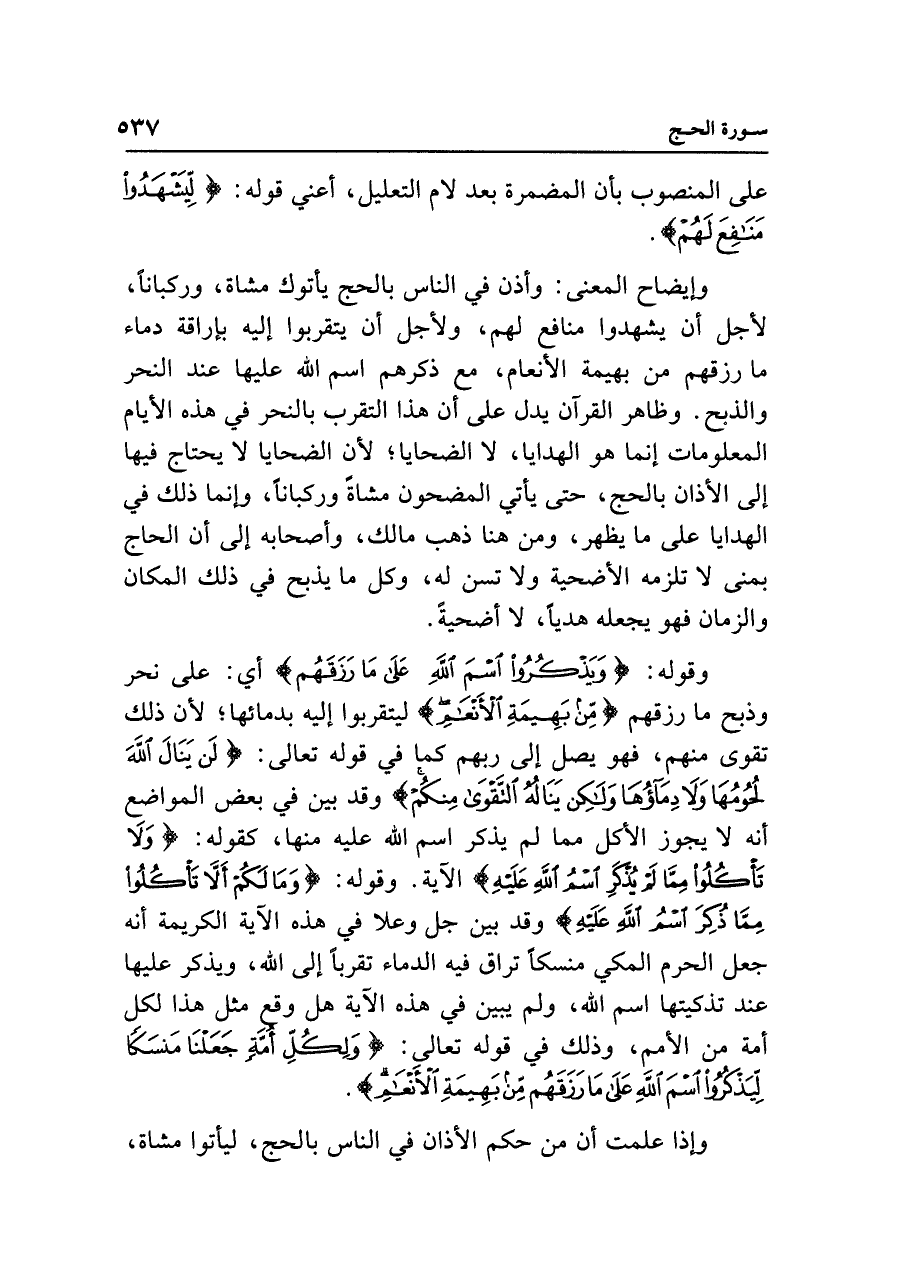 سورة الحج ٥٣٧
على المنصوب بأن المضمرة بعد لام التعليل، أعني قوله: ﴿ لِّيَشۡهَدُواْ
مَنَٰفِعَ لَهُمۡ﴾ .
وإيضاح المعنى: وأذن في الناس بالحج يأتوك مشاة، وركباناً،
لأجل أن يشهدوا منافع لهم، ولأجل أن يتقربوا إليه بإراقة دماء
ما رزقهم من بهيمة الأنعام، مع ذكرهم اسم الله عليها عند النحر
والذبح. وظاهر القرآن يدل على أن هذا التقرب بالنحر في هذه الأيام
المعلومات إنما هو الهدايا، لا الضحايا؛ لأن الضحايا لا يحتاج فيها
إلى الأذان بالحج، حتى يأتي المضحون مشاةً وركباناً، وإنما ذلك في
الهدايا على ما يظهر، ومن هنا ذهب مالك، وأصحابه إلى أن الحاج
بمنى لا تلزمه الأضحية ولا تسن له، وكل ما يذبح في ذلك المكان
والزمان فهو يجعله هدياً، لا أضحيةً.
وقوله: ﴿ وَيَذۡكُرُواْ ٱسۡمَ ٱللَّهِ عَلَىٰ مَا رَزَقَهُم﴾ أي: على نحر
وذبح ما رزقهم ﴿مِّنۢ بَهِيمَةِ ٱلۡأَنۡعَٰمِۖ﴾ ليتقربوا إليه بدمائها؛ لأن ذلك
تقوى منهم، فهو يصل إلى ربهم كما في قوله تعالى: ﴿ لَن يَنَالَ ٱللَّهَ
لُحُومُهَا وَلَا دِمَآؤُهَا وَلَٰكِن يَنَالُهُ ٱلتَّقۡوَىٰ مِنكُمۡۚ﴾ وقد بين في بعض المواضع
أنه لا يجوز الأكل مما لم يذكر اسم الله عليه منها، كقوله: ﴿ وَلَا
تَأۡكُلُواْ مِمَّا لَمۡ يُذۡكَرِ ٱسۡمُ ٱللَّهِ عَلَيۡهِ﴾ الآية. وقوله: ﴿وَمَا لَكُمۡ أَلَّا تَأۡكُلُواْ
مِمَّا ذُكِرَ ٱسۡمُ ٱللَّهِ عَلَيۡهِ﴾ وقد بين جل وعلا في هذه الآية الكريمة أنه
جعل الحرم المكي منسكاً تراق فيه الدماء تقرباً إلى الله، ويذكر عليها
عند تذكيتها اسم الله، ولم يبين في هذه الآية هل وقع مثل هذا لكل
أمة من الأمم، وذلك في قوله تعالى: ﴿ وَلِكُلِّ أُمَّةٖ جَعَلۡنَا مَنسَكٗا
لِّيَذۡكُرُواْ ٱسۡمَ ٱللَّهِ عَلَىٰ مَا رَزَقَهُم مِّنۢ بَهِيمَةِ ٱلۡأَنۡعَٰمِۗ﴾ .
وإذا علمت أن من حكم الأذان في الناس بالحج، ليأتوا مشاة،